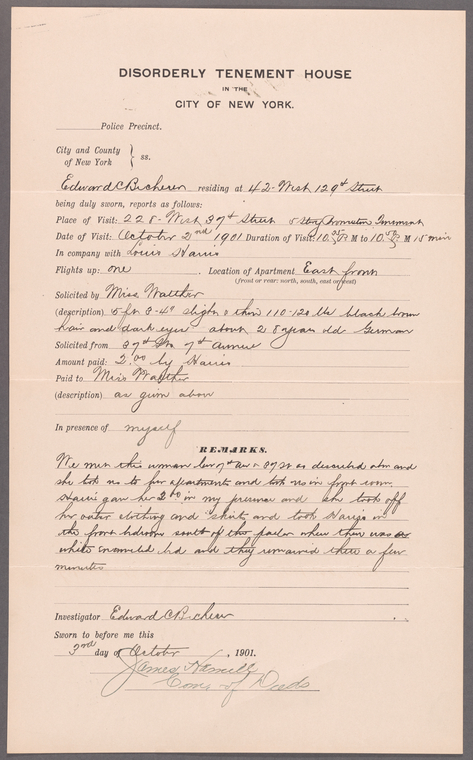 DISORDERLY TENEMENT HOUSE
IN THE
CITY OF NEW YORK.
Police Precinct.
City and County
of New York } ss.
Edward C Becherer residing at 42-West 129th Street
being duly sworn, reports as follows:
Place of Visit: 228-West 37th Street 5 Story Tenement
Date of Visit: October 2nd 1901 Duration of Visit: 10.35 P M to 10.50 P M 15 min
In company with Louis Harris
Flights up: one . Location of Apartment East front
(front or rear: north, south, east or west)
Solicited by Miss Walther
(description) 5 ft 3-4" slight & thin 110-120 lbs black brown
hair and dark eyes about 28 years old German
Solicited from 37th St 7th Avenue
Amount paid: 2.00 by Harris
Paid to Miss Walther
(description) as given above
In presence of myself
REMARKS.
We met this woman cor 7th Ave & 37 St as described above and
she took us to her apartments and took us in front room.
Harris gave her 2.00 in my presence and she took off
her outer clothing and skirts and took Harris in
the front bedroom south of this parlor where there was a
white enameled bed and they remained there a few
minutes
Investigator Edward C Becherer
Sworn to before me this
3rd day of October , 1901.
James Hamill
Com of Deeds